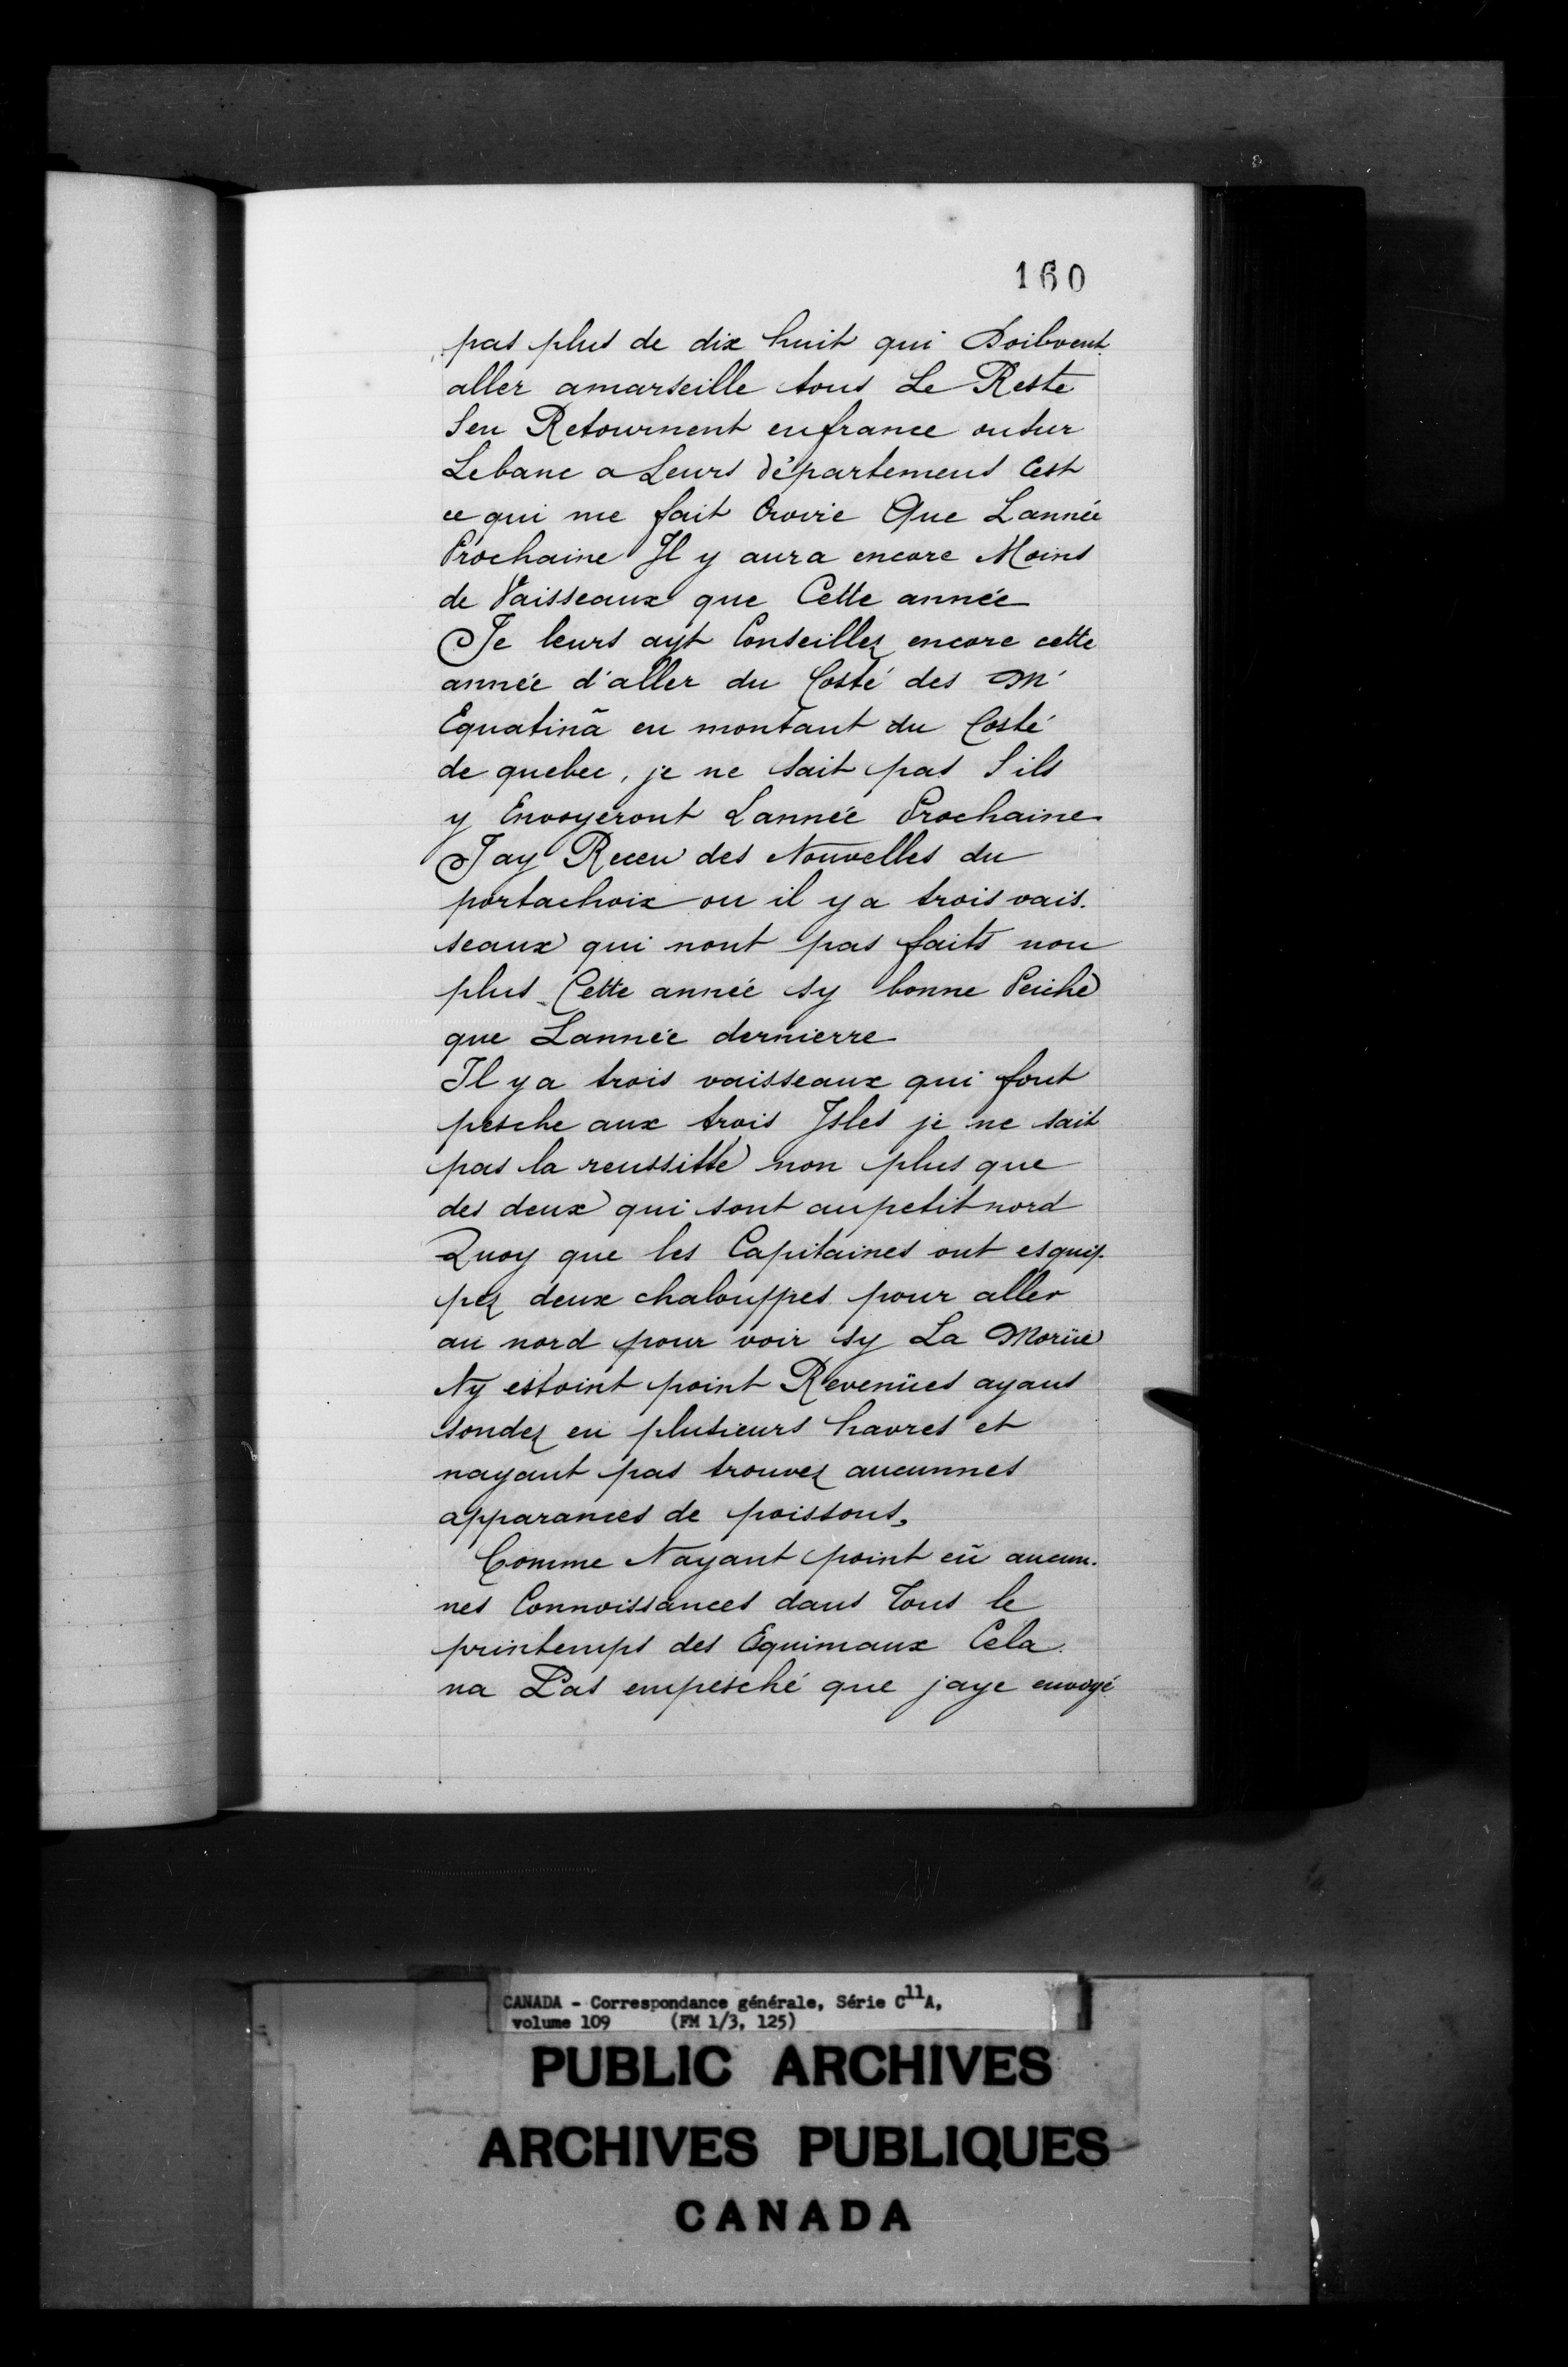 160
pas plus de dix huit qui Doibvent
aller amarseille tous Le Reste
Sen Retournent enfrance ousur
Lebanc a Leurs départemens Cest
ce qui me fait Crovie Que Lannée
Prochaine Il y aura encore Moins
de Vaisseaux que Cette année
Je leurs ayt Conseillez encore cette
année d'aller du Costé des M'
Equatinã en montant du Costé
de quebec, je ne sait pas S ils
y Envoyeront Lannée Prochaine
Jay Receu des Nouvelles du
portachoix ou il y a trois vais-
seaux qui nont pas faits non
plus Cette année sy bonne Peiche
que Lannée dernierre
Il y a trois vaisseaux qui font
pesche aux trois Isles je ne sait
pas la reussitte non plus que
des deux qui sont aupetit nord
Quoy que les Capitaines ont esquip-
pez deux chalouppes pour aller
au nord pour voir sy La Morüe
Ny estoint point Revenües ayans
sondez en plusieurs havres et
nayant pas trouvez aucunnes
apparances de poissons,
Comme Nayant point eü aucun-
nes Connoissances dans Tous le
printemps des Equimaux Cela
na Pas empesché que jaye envoyé
CANADA - Correspondance générale, Série C11A,
volume 109 (FM 1/3, 125)
PUBLIC ARCHIVES
ARCHIVES PUBLIQUES
CANADA